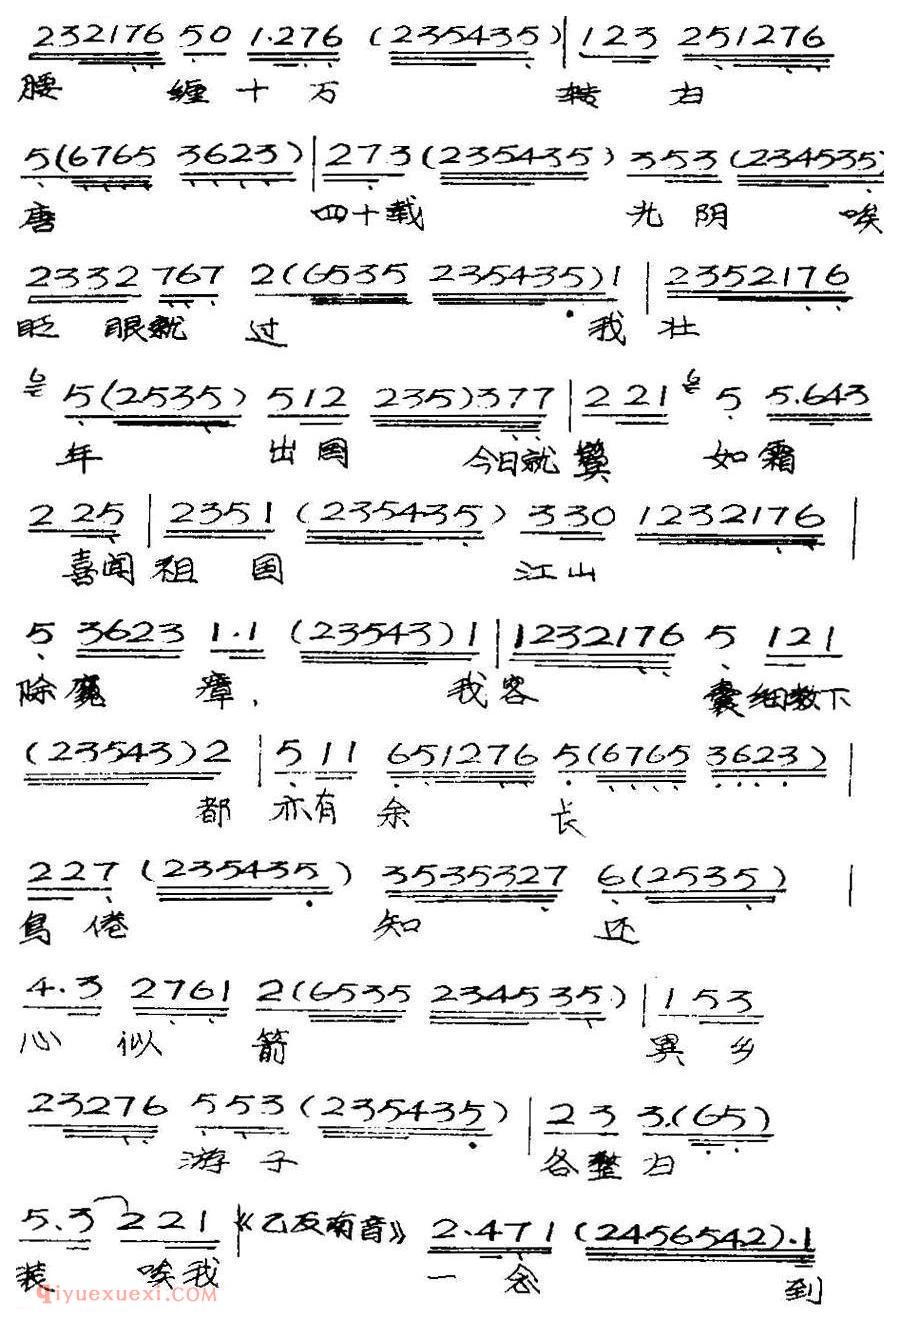 232176 50 1.276 (235435) | 123 251276
腰 缠 十 万 转 归
5(6765 3623) | 273 (235435) 353 (234535)
唐 四十载 光 阴 唉
2332 767 2(6535 235435)1 | 2352176
眨 眼就 过 我 壮
6 5(2535) 512 235)377 | 2 21 6 5 5.643
年 出 国 今日就鬓 如 霜
2 25 | 2351 (235435) 330 1232176 |
喜闻 祖 国 江山
5 3623 1.1 (23543)1 | 1232176 5 121
除魔 瘴, 我 客 囊细数下
(23543)2 | 5 11 651276 5(6765 3623) |
都 亦有 余 长
227 (235435) 3535327 6(2535) |
鸟 倦 知 还
4.3 2761 2(6535 234535) | 1 53
心 似 箭 異 乡
23276 553 (235435) | 23 3.(65)
游 子 各整 归
5.3 2 21 | 《乙反南音》 2.471 (2456542).1
装 唉我 一 念 到
qiyuexuexi.com